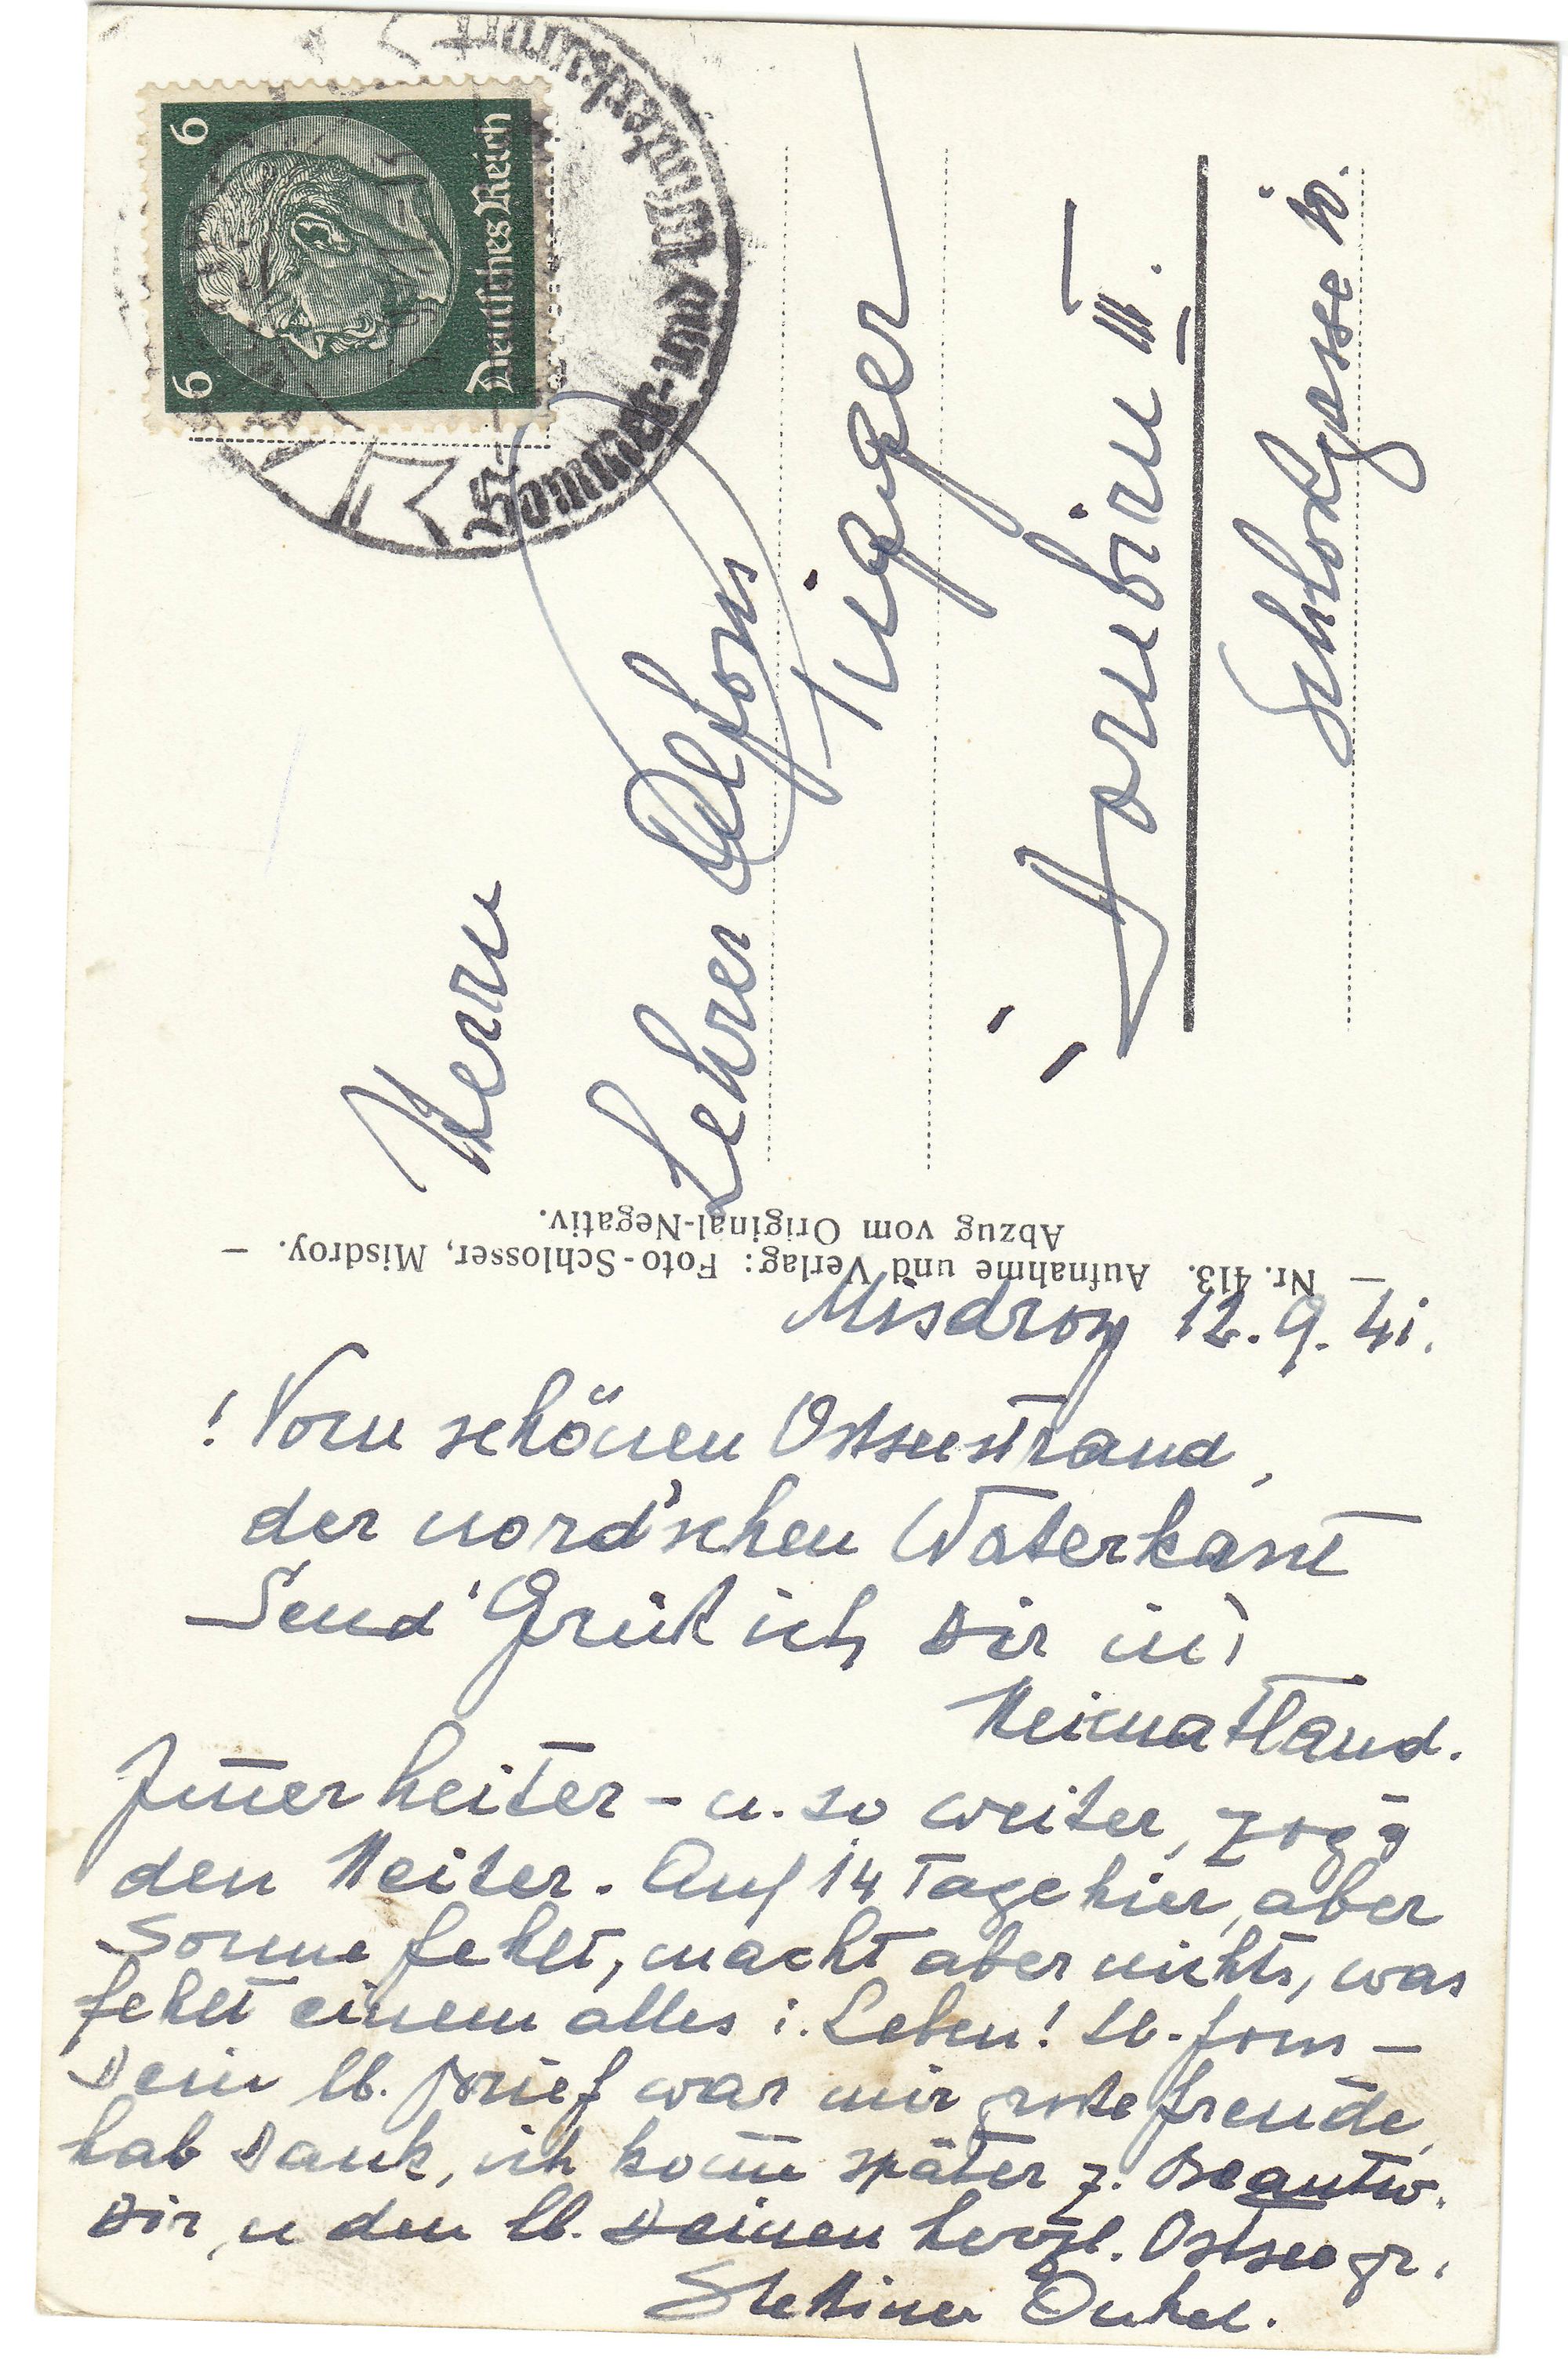 Misdroy 12.9.41.
! Vom schönen Ostseestrand,
der nord'schen Waterkant
Send' Grüß ich Dir in's
Heimatland.
Im̄er heiter - u. so weiter,
den Heiter. Auf 14 Tage hier, aber
Sonne fehlt, macht aber nichts, was
fehlt einem alles i. Leben! Lb. Fons -
Dein lb. Brief war mir große Freude,
hab Dank, ich kom̄e später z. Beantw.
Dir, u den lb. Deinen herzl. Ostseegr.
Stettiner Onkel.
— Nr. 413. Aufnahme und Verlag: Foto-Schlosser, Misdroy. —
Abzug vom Original-Negativ.
Herrn
Lehrer Alfons
Luger
Dornbirn III.
Schloßgasse 10.
6 6
Deutsches Reich
Sommer- und Winterkurort